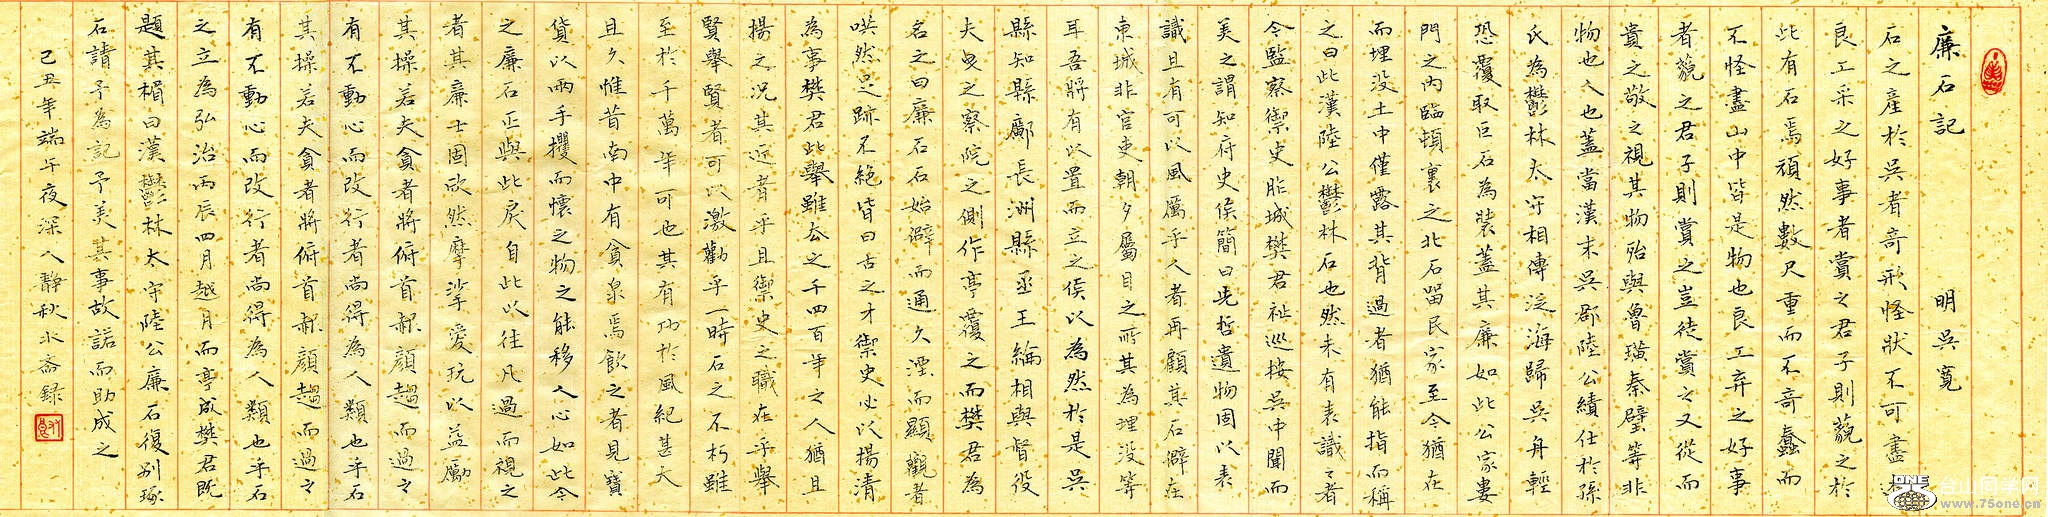 廉石記　明吳寬
石之產於吳者奇形怪狀不可盡
良工采之好事者賞之君子則藐之於
此有石焉頑然數尺重而不奇蠢而
不怪盡山中皆是物也良工弃之好事
者藐之君子則賞之豈徒賞之又從而
貴之敬之視其物殆與魯璜秦璧等非
物也人也蓋當漢末吳郡陸公績仕於孫
氏為鬱林太守相傳泛海歸吳舟輕
恐覆取巨石為裝蓋其廉如此公家婁
門之內臨頓裏之北石留民家至今猶在
而埋没土中僅露其背過者猶能指而稱
之曰此漢陸公鬱林石也然未有表識之者
令監察御史胙城樊君祉巡按吳中聞而
美之謂知府史侯簡曰先哲遺物固以表
識且有可以風厲乎人者再顧其石僻在
東城非官吏朝夕屬目之所其為埋没等
耳吾將有以置而立之侯以為然於是吳
縣知縣鄺長洲縣丞王綸相與督役
夫曳之察院之側作亭覆之而樊君為
名之曰廉石石始僻而通久湮而顯觀者
哄然足跡不絕皆曰古之才御史必以揚清
為事樊君此舉雖去之千四百年之人猶且
揚之况其近者乎且御史之職在乎舉
賢舉賢者可以激勸乎一時石之不朽雖
至於千萬年可也其有功於風紀甚大
且久惟昔南中有貪泉焉飲之者見寶
貨以兩手攫而懷之物之能移人心如此今
之廉石正與此戾自此以往凡過而視之
者其廉士固欣然摩挲愛玩以益勵
其操若夫貪者將俯首赧顏趨而過之
有不動心而改行者尚得為人類也乎石
其操若夫貪者將俯首赧顏趨而過之
有不動心而改行者尚得為人類也乎石
之立為弘治丙辰四月越月而亭成樊君既
題其楣曰漢鬱林太守陸公廉石復别琢
石請予為記予美其事故諾而助成之
己丑年端午夜深人靜秋水斋録
ONE
台山国学网
www.75one.cn